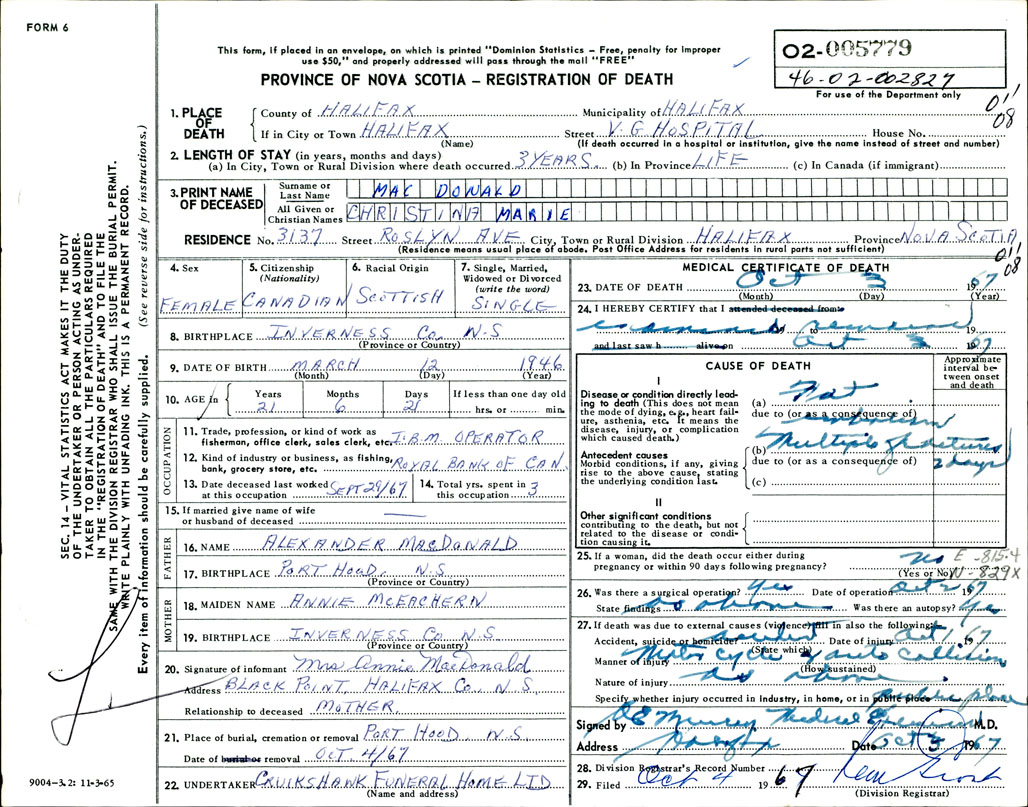 FORM 6
This form, if placed in an envelope, on which is printed "Dominion Statistics – Free, penalty for improper
use $50," and properly addressed will pass through the mail "FREE"
PROVINCE OF NOVA SCOTIA – REGISTRATION OF DEATH
02-005779
46-02-002827
For use of the Department only
011
08
1. PLACE OF DEATH
County of HALIFAX Municipality of HALIFAX
If in City or Town HALIFAX Street V. G HOSPITAL House No.
(Name) (If death occurred in a hospital or institution, give the name instead of street and number)
2. LENGTH OF STAY (in years, months and days)
(a) In City, Town or Rural Division where death occurred 3 YEARS (b) In Province LIFE (c) In Canada (if immigrant)
3. PRINT NAME OF DECEASED
Surname or Last Name MAC DONALD
All Given or Christian Names CHRISTINA MARIE
RESIDENCE No. 3137 Street ROSLYN AVE City, Town or Rural Division HALIFAX Province NOVA SCOTIA
(Residence means usual place of abode. Post Office Address for residents in rural parts not sufficient)
011
08
4. Sex
FEMALE
5. Citizenship
(Nationality)
CANADIAN
6. Racial Origin
SCOTTISH
7. Single, Married,
Widowed or Divorced
(write the word)
SINGLE
8. BIRTHPLACE INVERNESS Co. N.S
(Province or Country)
9. DATE OF BIRTH MARCH 12 1946
(Month) (Day) (Year)
10. AGE in Years Months Days If less than one day old
21 6 21 hrs. or min.
OCCUPATION
11. Trade, profession, or kind of work as
fisherman, office clerk, sales clerk, etc. I.B.M. OPERATOR
12. Kind of industry or business, as fishing,
bank, grocery store, etc. ROYAL BANK OF CAN.
13. Date deceased last worked
at this occupation SEPT 29/67
14. Total yrs. spent in
this occupation 3
15. If married give name of wife
or husband of deceased —
FATHER
16. NAME ALEXANDER MACDONALD
17. BIRTHPLACE PORT HOOD, N.S.
(Province or Country)
MOTHER
18. MAIDEN NAME ANNIE McEACHERN
19. BIRTHPLACE INVERNESS Co. N.S.
(Province or Country)
20. Signature of informant Mrs Annie MacDonald
Address BLACK POINT, HALIFAX Co., N.S.
Relationship to deceased MOTHER,
21. Place of burial, cremation or removal PORT HOOD N.S.
Date of burial or removal OCT. 4/67
22. UNDERTAKER CRUIKSHANK FUNERAL HOME LTD
(Name and address)
MEDICAL CERTIFICATE OF DEATH
23. DATE OF DEATH Oct 3 1967
(Month) (Day) (Year)
24. I HEREBY CERTIFY that I attended deceased from
examined remains 19
and last saw h alive on Oct 3 1967
CAUSE OF DEATH
Approximate
interval be-
tween onset
and death
I
Disease or condition directly lead-
ing to death (This does not mean
the mode of dying, e.g., heart fail-
ure, asthenia, etc. It means the
disease, injury, or complication
which caused death.)
(a) Fat
due to (or as a consequence of)
embolism
Antecedent causes
Morbid conditions, if any, giving
rise to the above cause, stating
the underlying condition last.
(b) Multiple fractures
due to (or as a consequence of) 2 days
(c)
II
Other significant conditions
contributing to the death, but not
related to the disease or condi-
tion causing it.
25. If a woman, did the death occur either during
pregnancy or within 90 days following pregnancy? No
(Yes or No)
E-815.4
N-829X
26. Was there a surgical operation? Yes Date of operation Oct 2 1967
State findings as above Was there an autopsy? Yes
27. If death was due to external causes (violence) fill in also the following:
Accident, suicide or homicide? accident Date of injury Oct 1 1967
(State which)
Manner of injury Motor cycle & auto collision
(How sustained)
Nature of injury as above
Specify whether injury occurred in industry, in home, or in public place public place
Signed by Murray Medical Examiner M.D.
Address Halifax Date Oct 3 1967
28. Division Registrar's Record Number
29. Filed Oct 4 1967
(Division Registrar)
SEC. 14 – VITAL STATISTICS ACT MAKES IT THE DUTY
OF THE UNDERTAKER OR PERSON ACTING AS UNDER-
TAKER TO OBTAIN ALL THE PARTICULARS REQUIRED
IN THE "REGISTRATION OF DEATH" AND TO FILE THE
SAME WITH THE DIVISION REGISTRAR WHO SHALL ISSUE THE BURIAL PERMIT.
WRITE PLAINLY WITH UNFADING INK. THIS IS A PERMANENT RECORD.
Every item of information should be carefully supplied. (See reverse side for instructions.)
9004-3.2: 11-3-65